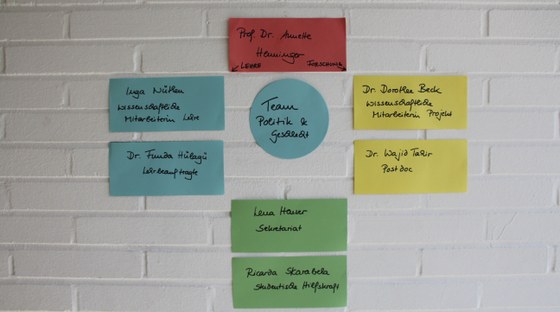 Prof. Dr. Annette
Henninger
LEHRE FORSCHUNG
Inga Nüthen
Wissenschaftliche
Mitarbeiterin Lehre
Dr. Funda Hülagü
Lehrbeauftragte
Team
Politik &
Geschlecht
Dr. Dorothee Beck
Wissenschaftliche
Mitarbeiterin Projekt
Dr. Wajid Tahir
Postdoc
Lena
Sekretariat
Ricarda Skarabela
Studentische Hilfskraft